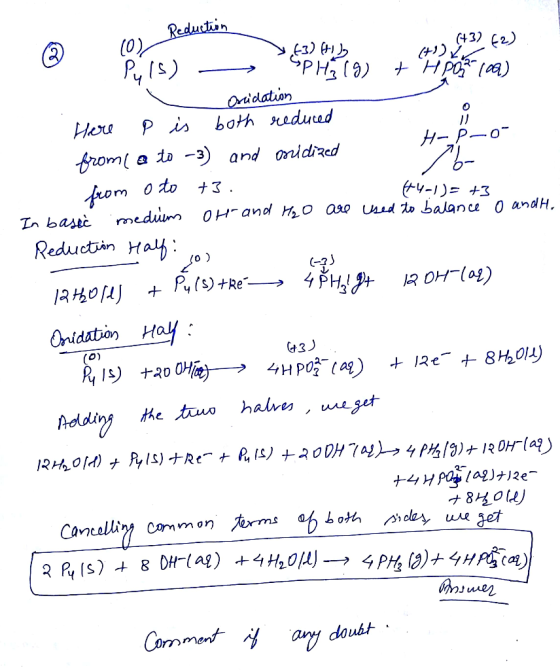 ②
Reduction
(0) (-3) (+1) (+1) (+3) (-2)
P₄(s) ⟶ PH₃(g) + HPO₃²⁻(aq)
Oxidation
Here P is both reduced
from (0 to -3) and oxidized
from 0 to +3.
O
H-P-O⁻
O⁻
(+4-1) = +3
In basic medium OH⁻ and H₂O are used to balance O and H.
Reduction Half:
(0) (-3)
12H₂O(l) + P₄(s) + 12e⁻ ⟶ 4PH₃(g) + 12OH⁻(aq)
Oxidation Half:
(0) (+3)
P₄(s) + 20OH⁻(aq) ⟶ 4HPO₃²⁻(aq) + 12e⁻ + 8H₂O(l)
Adding the two halves, we get
12H₂O(l) + P₄(s) + 12e⁻ + P₄(s) + 20OH⁻(aq) → 4PH₃(g) + 12OH⁻(aq)
+ 4HPO₃²⁻(aq) + 12e⁻
+ 8H₂O(l)
Cancelling common terms of both sides, we get
2P₄(s) + 8OH⁻(aq) + 4H₂O(l) ⟶ 4PH₃(g) + 4HPO₃²⁻(aq)
Answer
Comment if any doubt.